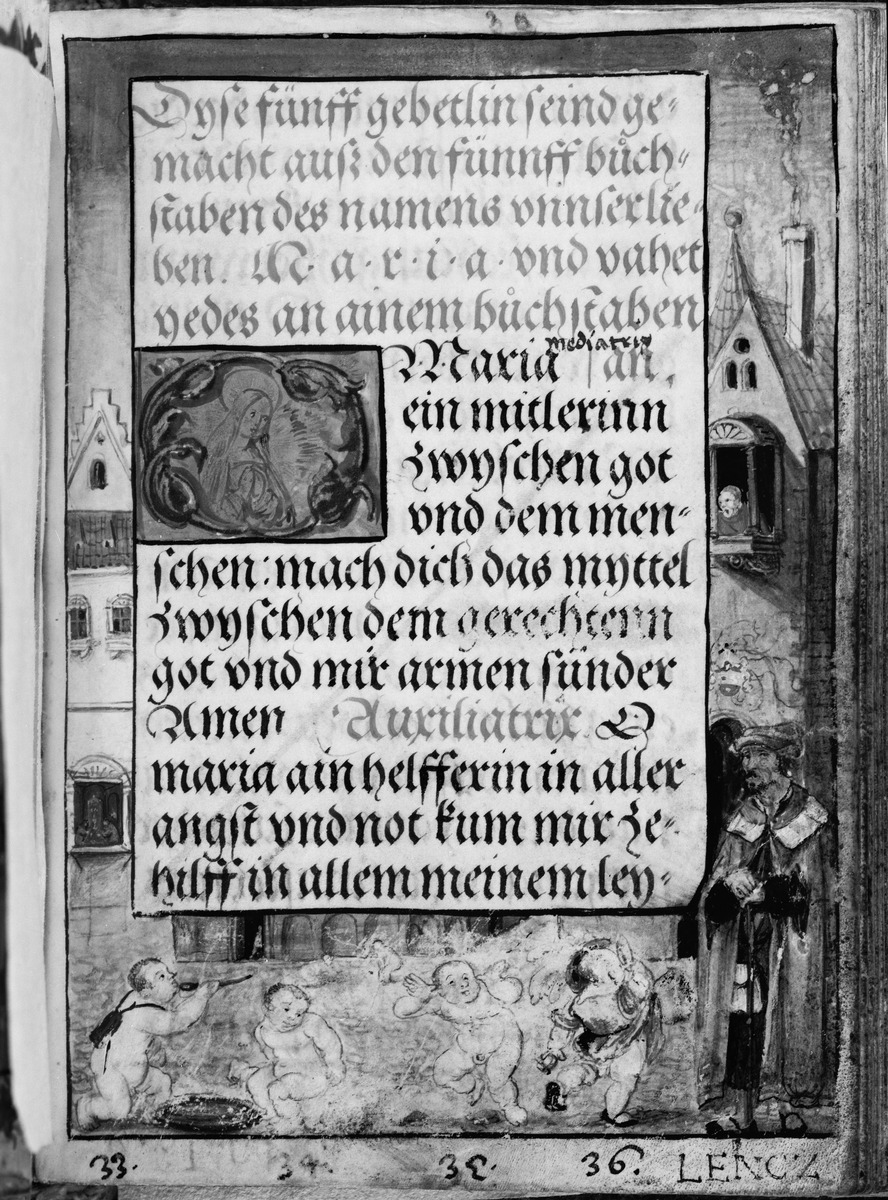 Dyse fünff gebetlin seind ge-
macht ausz den fünnff bůch-
staben des namens vnnser lie-
ben. M. a. r. i. a. vnd vahet
yedes an ainem bůchstaben
mediatrix
Maria
ein mitlerinn
zwyschen got
vnd dem men-
schen: mach dich das myttel
zwyschen dem gerechtenn
got vnd mir armen sünder
Amen Auxiliatrix. O
maria ain helfferin in aller
angst vnd not kum mir ze-
hilff in allem meinem ley-
33. 34. 35. 36. LENCZ